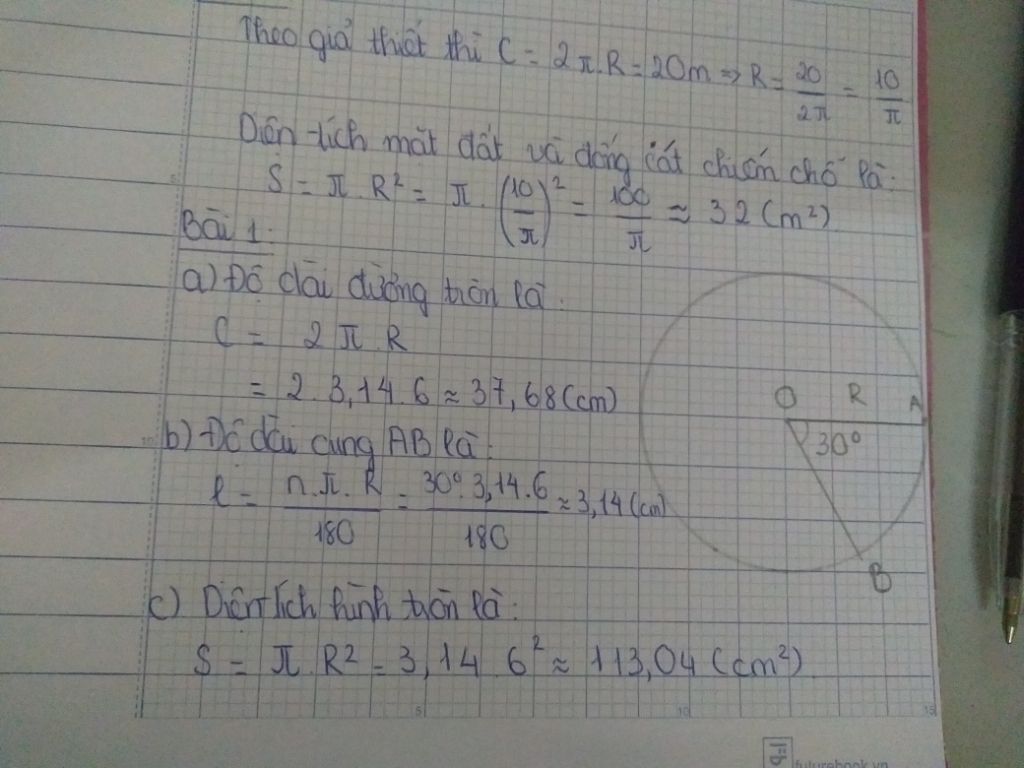 Theo giả thiết thì C = 2π.R = 20m => R = 20/2π = 10/π
Diện tích mặt đất và đống cát chiếm chỗ là:
S = π.R² = π.(10/π)² = 100/π ≈ 32 (m²)
Bài 1:
a) Độ dài đường tròn là:
C = 2π.R
= 2.3,14.6 ≈ 37,68 (cm)
O R A
30°
B
b) Độ dài cung AB là:
l = n.π.R/180 = 30°.3,14.6/180 ≈ 3,14 (cm)
c) Diện tích hình tròn là:
S = π.R² = 3,14.6² ≈ 113,04 (cm²)
5 10 15
futurebook.vn